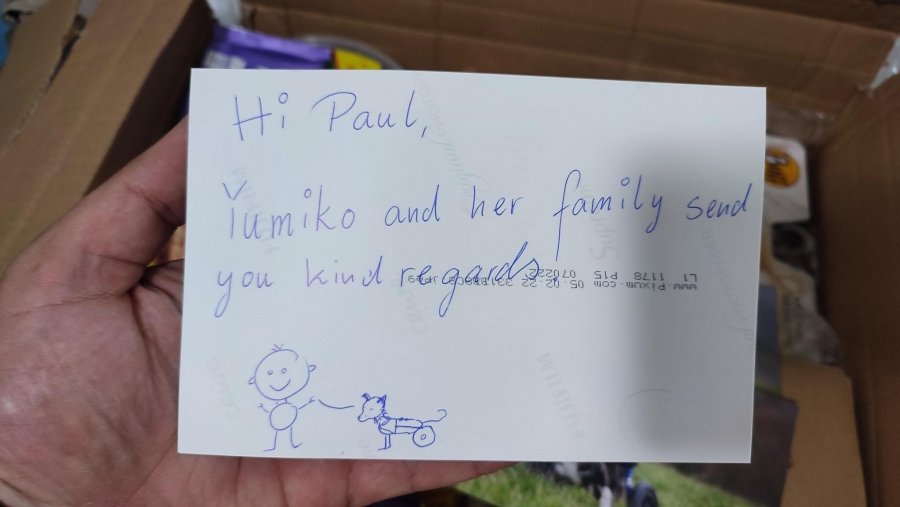 Hi Paul,
Yumiko and her family send
you kind regards!
L1 1178 P15 070222
www.Pixum.com 05.02.22